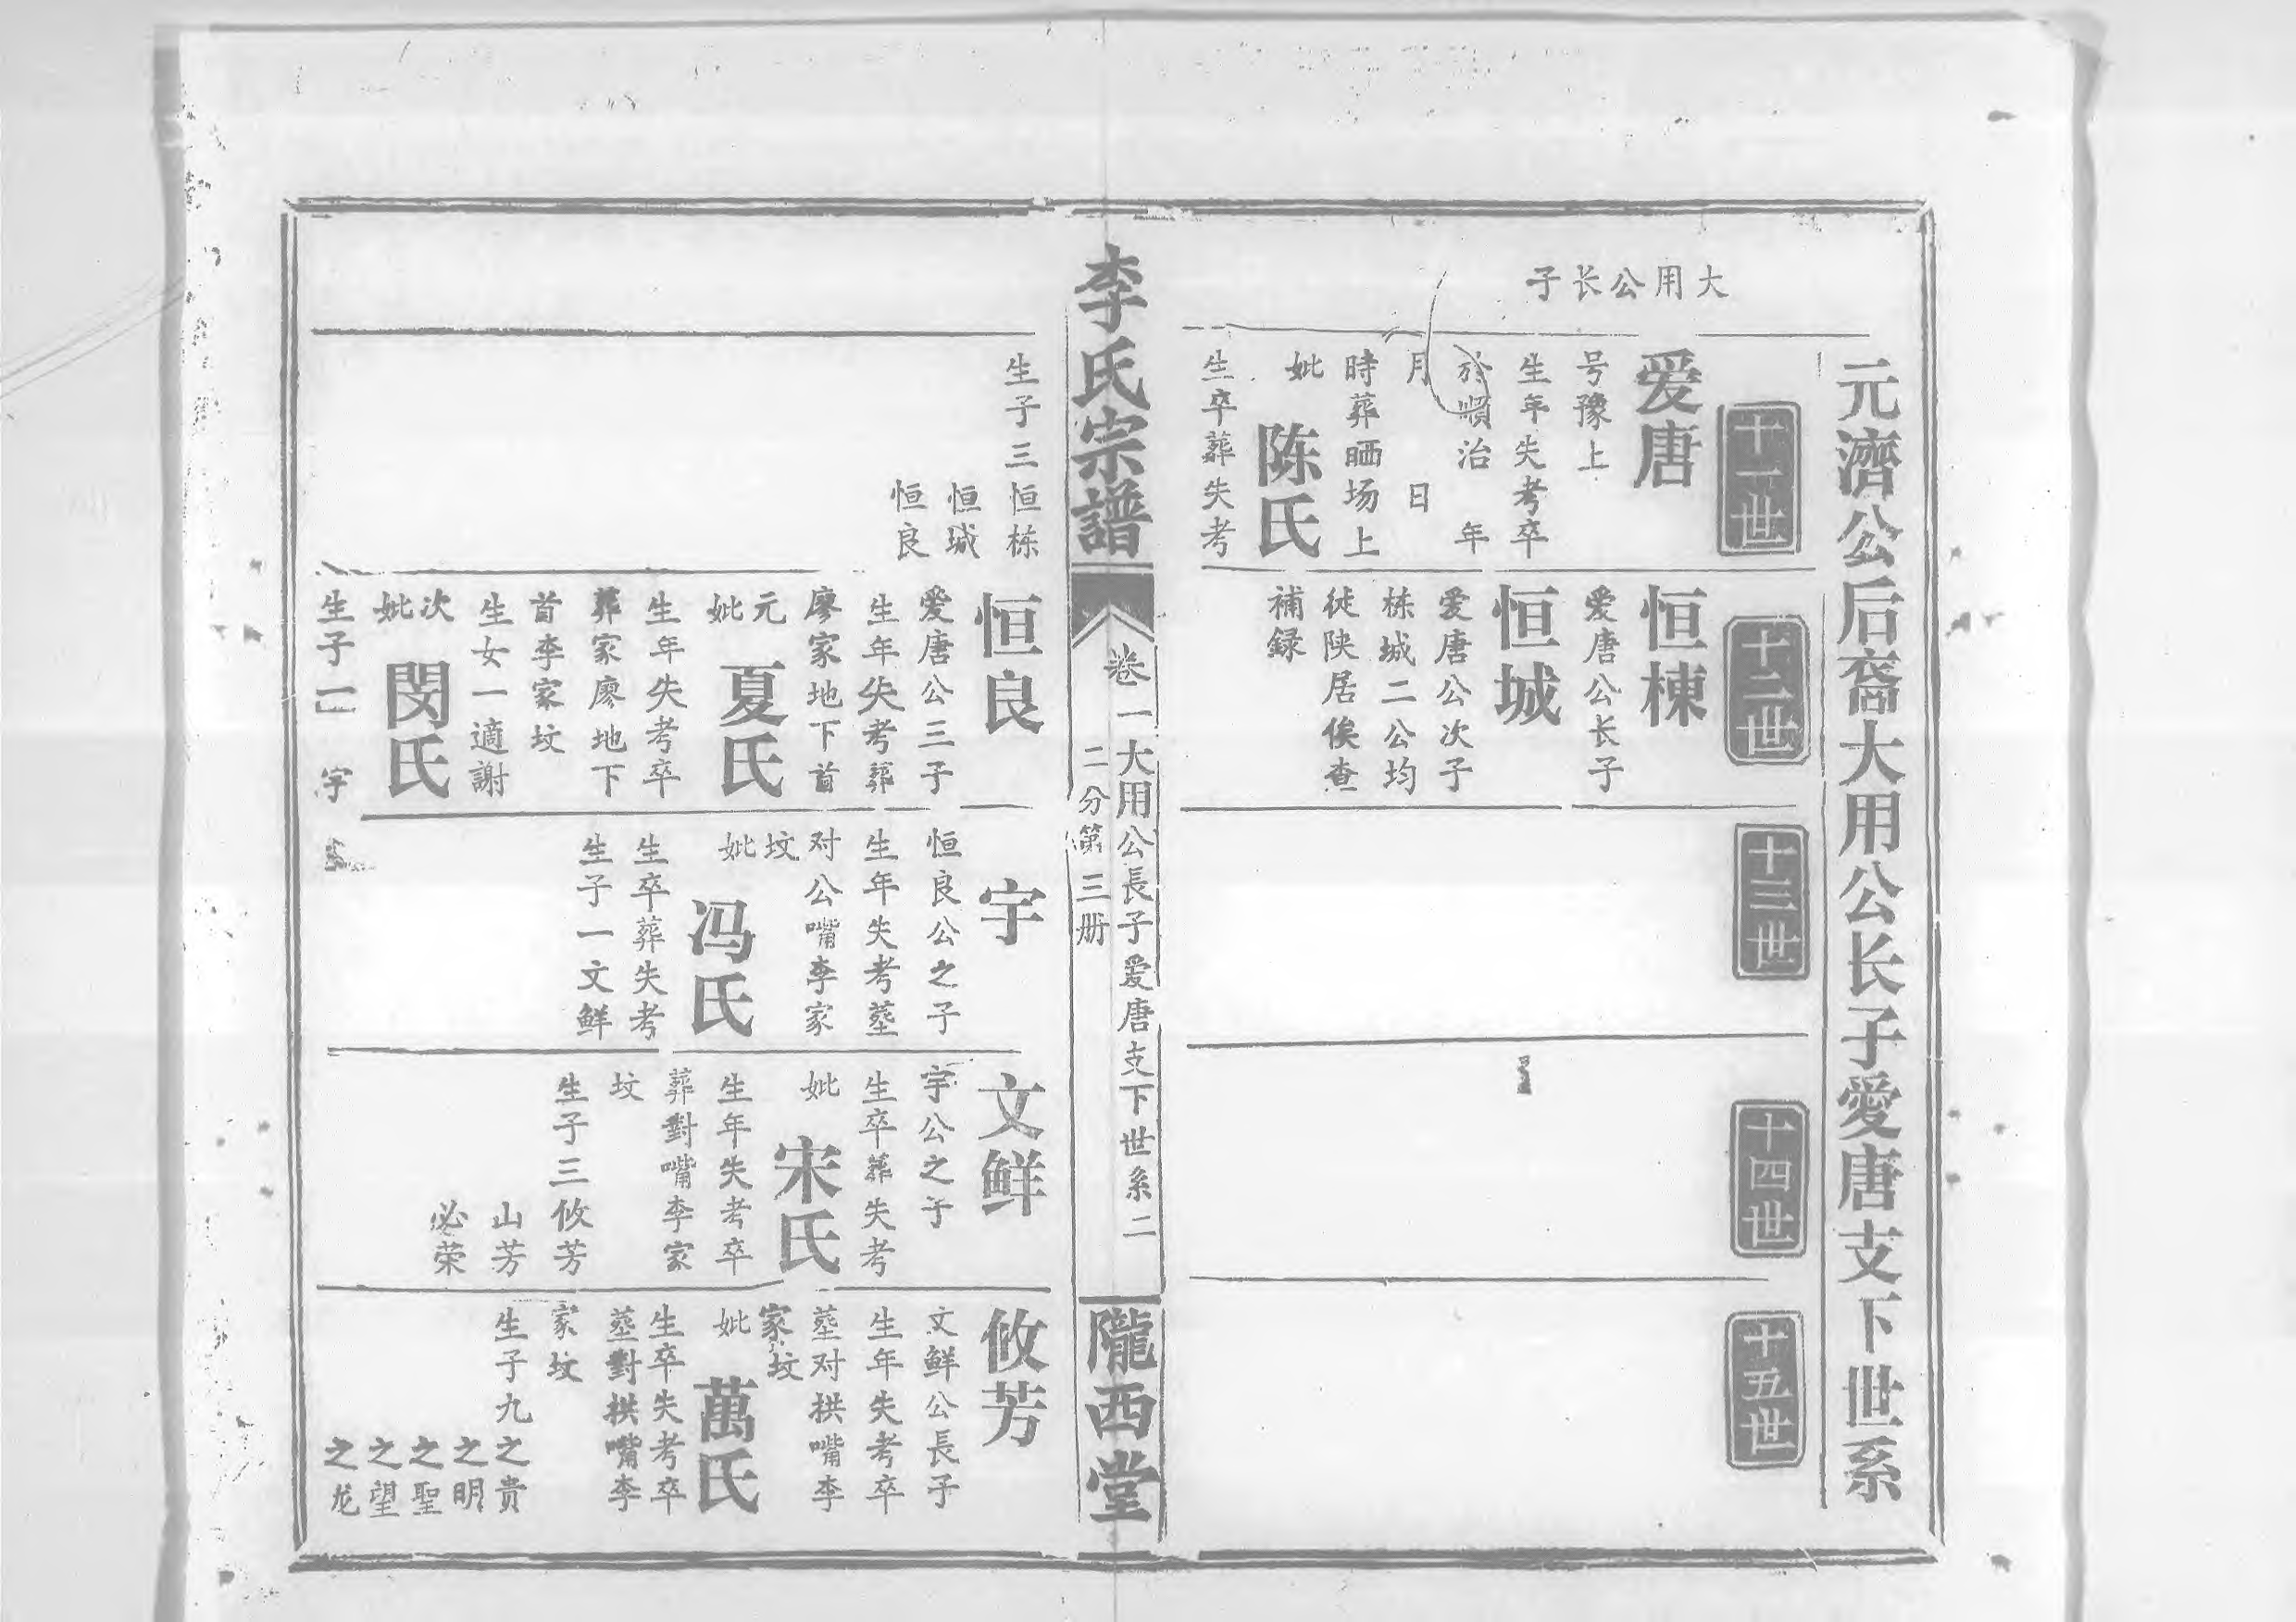 元濟公后裔大用公长子愛唐支下世系
大用公长子
十一世
爱唐
号豫上
生年失考卒
於順治 年
月 日
時葬晒场上
妣 陈氏
生卒葬失考
十二世
恒棟
爱唐公长子
恒城
爱唐公次子
栋城二公均
徙陕居俟查
補録
十三世
十四世
十五世
李氏宗譜
卷一大用公長子爱唐支下世系二
二分第三册
隴西堂
生子三恒栋
恒城
恒良
恒良
爱唐公三子
生年失考葬
廖家地下首
元妣 夏氏
生年失考卒
葬家廖地下
首李家坟
生女一適謝
次妣 閔氏
生子一 宇
宇
恒良公之子
生年失考塟
对公嘴李家
坟
妣 冯氏
生卒葬失考
生子一文鲜
文鲜
宇公之子
生卒葬失考
妣 宋氏
生年失考卒
葬對嘴李家
坟
生子三攸芳
山芳
必荣
攸芳
文鲜公長子
生年失考卒
塟对拱嘴李
家坟
妣 萬氏
生卒失考卒
塟對拱嘴李
家坟
生子九之贵
之明
之聖
之望
之龙